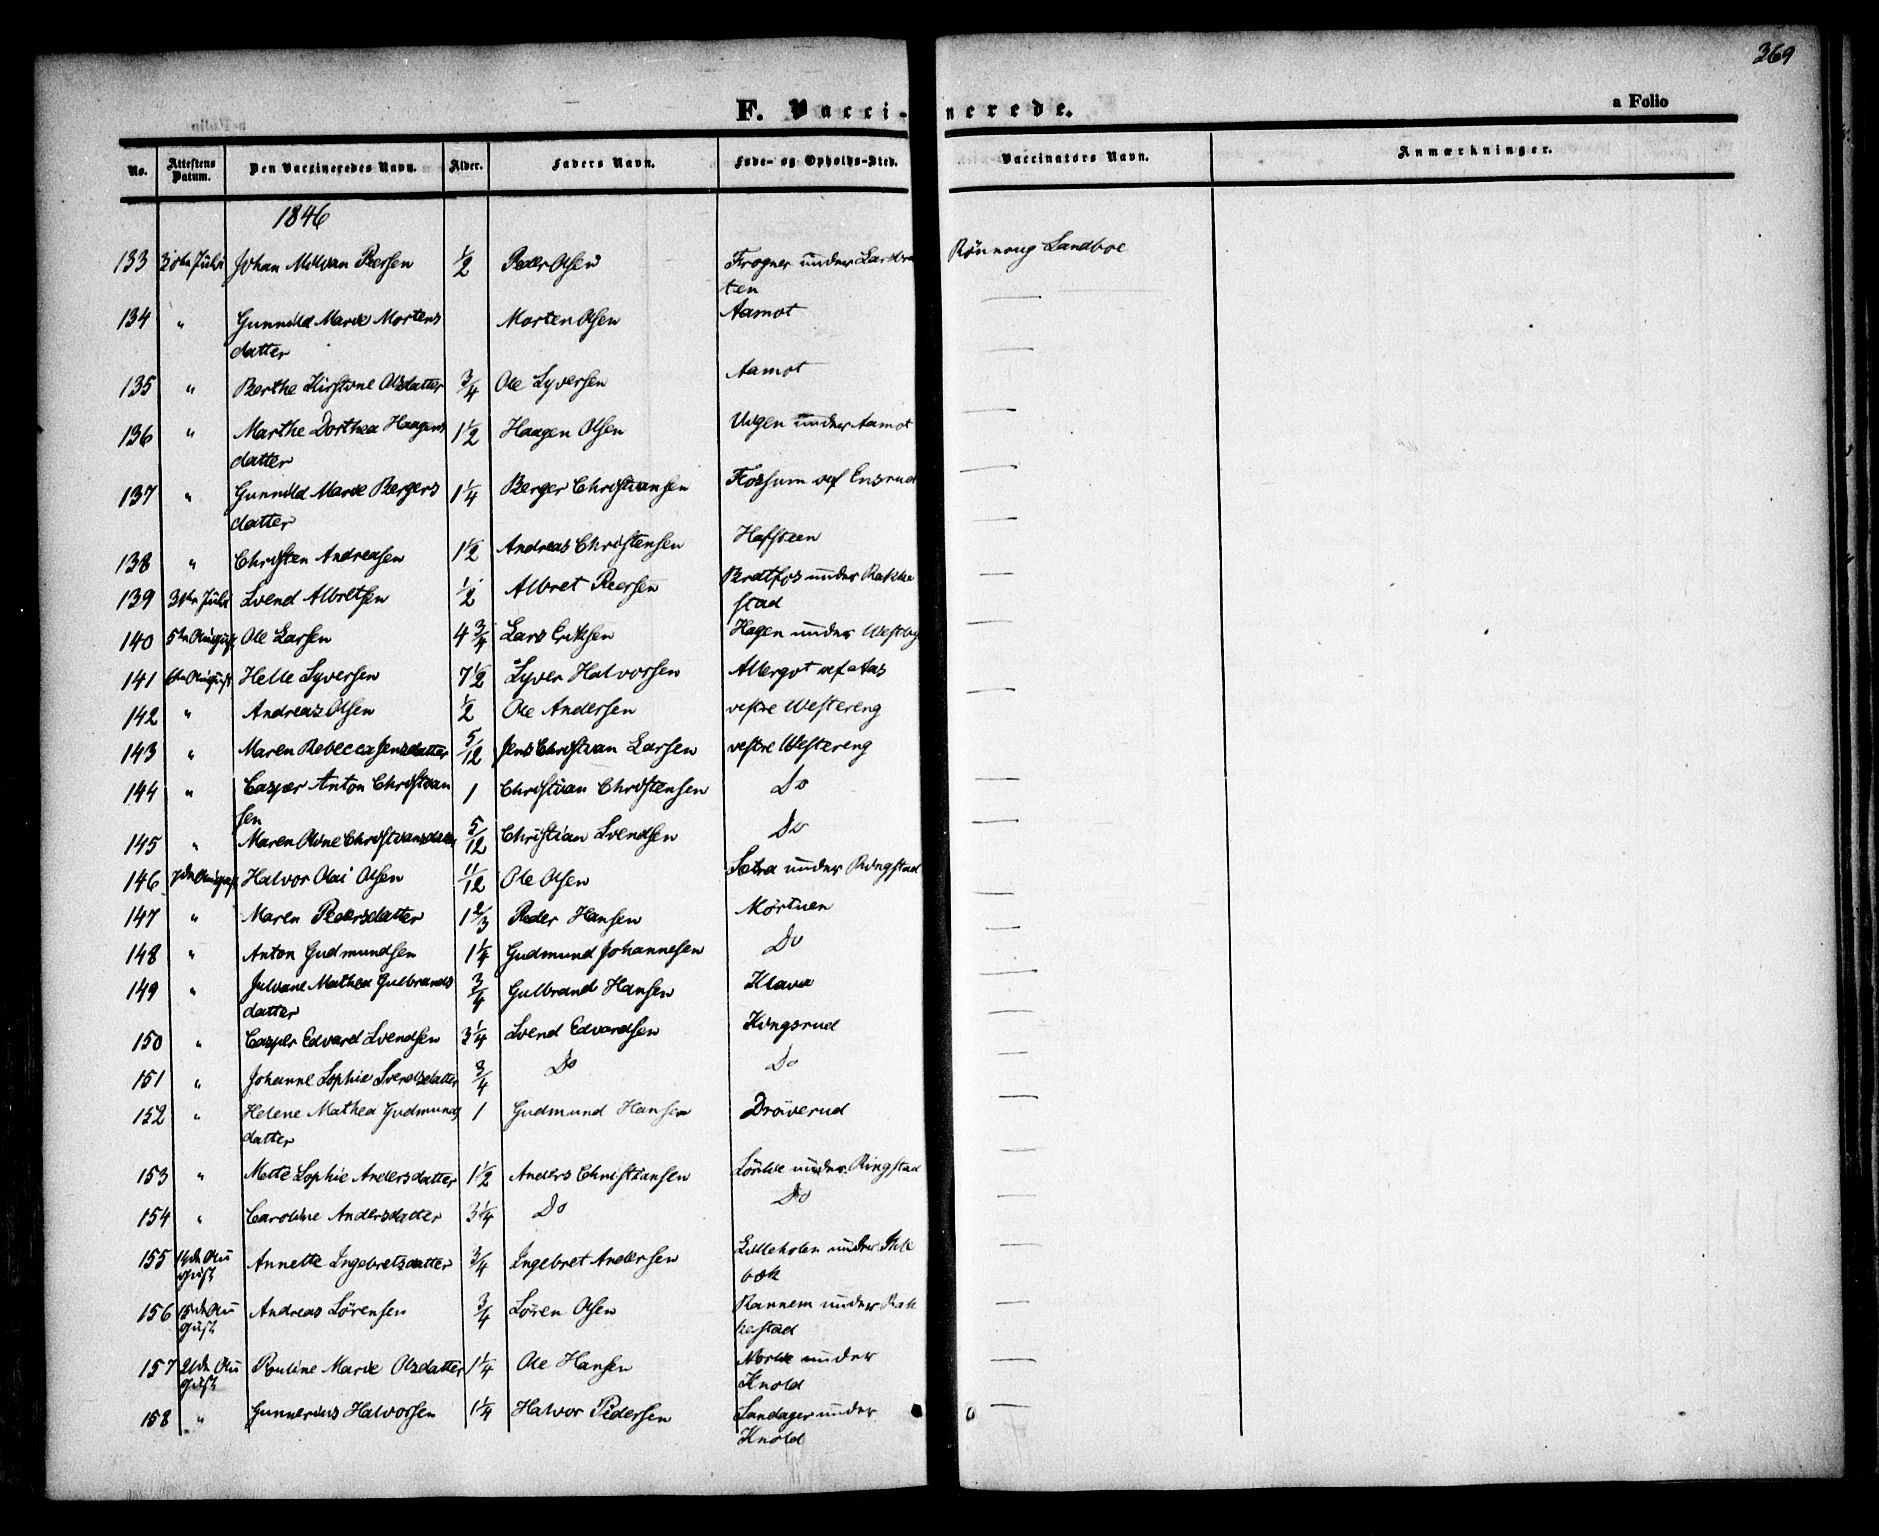 369
F. Vaccinerede.
a Folio
No. Attestens Datum. Den Vaccineredes Navn. Alder. Faders Navn. Føde- og Opholds-Sted. Vaccinators Navn. Anmærkninger.
1846
133 30te Juli Johan Milvan Peersen 1/2 Peder Olsen Frogner under
ten Rönnoug Sandboe
134 " Gunnild Marie Mortens Morten Olsen Aamot —
datter
135 " Berthe Kirstine Olsdatter 3/4 Ole Syversen Aamot —
136 " Marthe Dorthea Haagens 1 1/2 Haagen Olsen under Aamot —
datter
137 " Gunnild Marie Bergers 1 1/4 Berger Christiansen Fossum Ensrud —
datter
138 " Christen Andreasen 1 1/2 Andreas Christensen Hafsteen —
139 31te Juli Svend Albretsen 1/2 Albret Peersen Bratfos under Rakke
stad —
140 5te August Ole Larsen 4 3/4 Lars Eriksen Hagen under Westby —
141 6te August Helle Syversen 7 1/2 Syver Halvorsen Aas
142 " Andreas Olsen 1/2 Ole Andersen vestre Westereng —
143 " Maren Rebecca Jensdatter 5/12 Jens Christian Larsen vestre Westereng
144 " Casper Anton Christian 1 Christian Christensen Do —
sen
145 " Maren Oline Christiansdatter 5/12 Christian Svendsen Do —
146 7de August Halvor Olai Olsen 11/12 Ole Olsen Sætra under Ringstad —
147 " Maren Pedersdatter 1 2/3 Peder Hansen Mørtuen —
148 " Anton Gudmundsen 1 1/4 Gudmund Johannesen Do —
149 " Juliane Mathea Gulbrands 3/4 Gulbrand Hansen Klava —
datter
150 " Casper Edvard Svendsen 3 1/4 Svend Edvardsen Kingsrud —
151 " Johanne Sophie Svendsdatter 3/4 Do Do —
152 " Helene Mathea Gudmunds 1 Gudmund Hansen Dröverud —
datter
153 " Mette Sophie Andersdatter 1 1/2 Anders Christiansen under Ringstad —
154 " Caroline Andersdatter 3 1/4 Do Do —
155 14de Au Annette Ingebretsdatter 3/4 Ingebret Andersen Lilleholen under
gust bæk —
156 15de Au Andreas Sørensen 3/4 Søren Olsen Rannem under Rak
gust kestad —
157 21de Au Pauline Marie Olsdatter 1 1/4 Ole Hansen under
gust Knold —
158 " Gunnerius Halvorsen 1 1/4 Halvor Pedersen Sandager under
Knold —